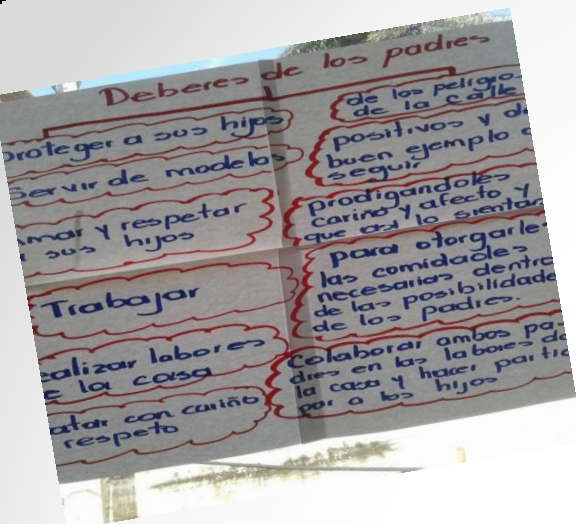 Deberes de los padres
proteger a sus hijos
servir de modelos
amar y respetar
a sus hijos
Trabajar
ealizar labores
e la casa
atar con cariño
respeto
de los peligro
de la calle
positivos y d
buen ejemplo a
seguir
prodigandoles
cariño y afecto y
que asi lo sientan
para otorgarle
las comidades
necesarias dentro
de las posibilidade
de los padres.
Colaborar ambos pa-
dres en las labores de
la casa y hacer partic
par a los hijos